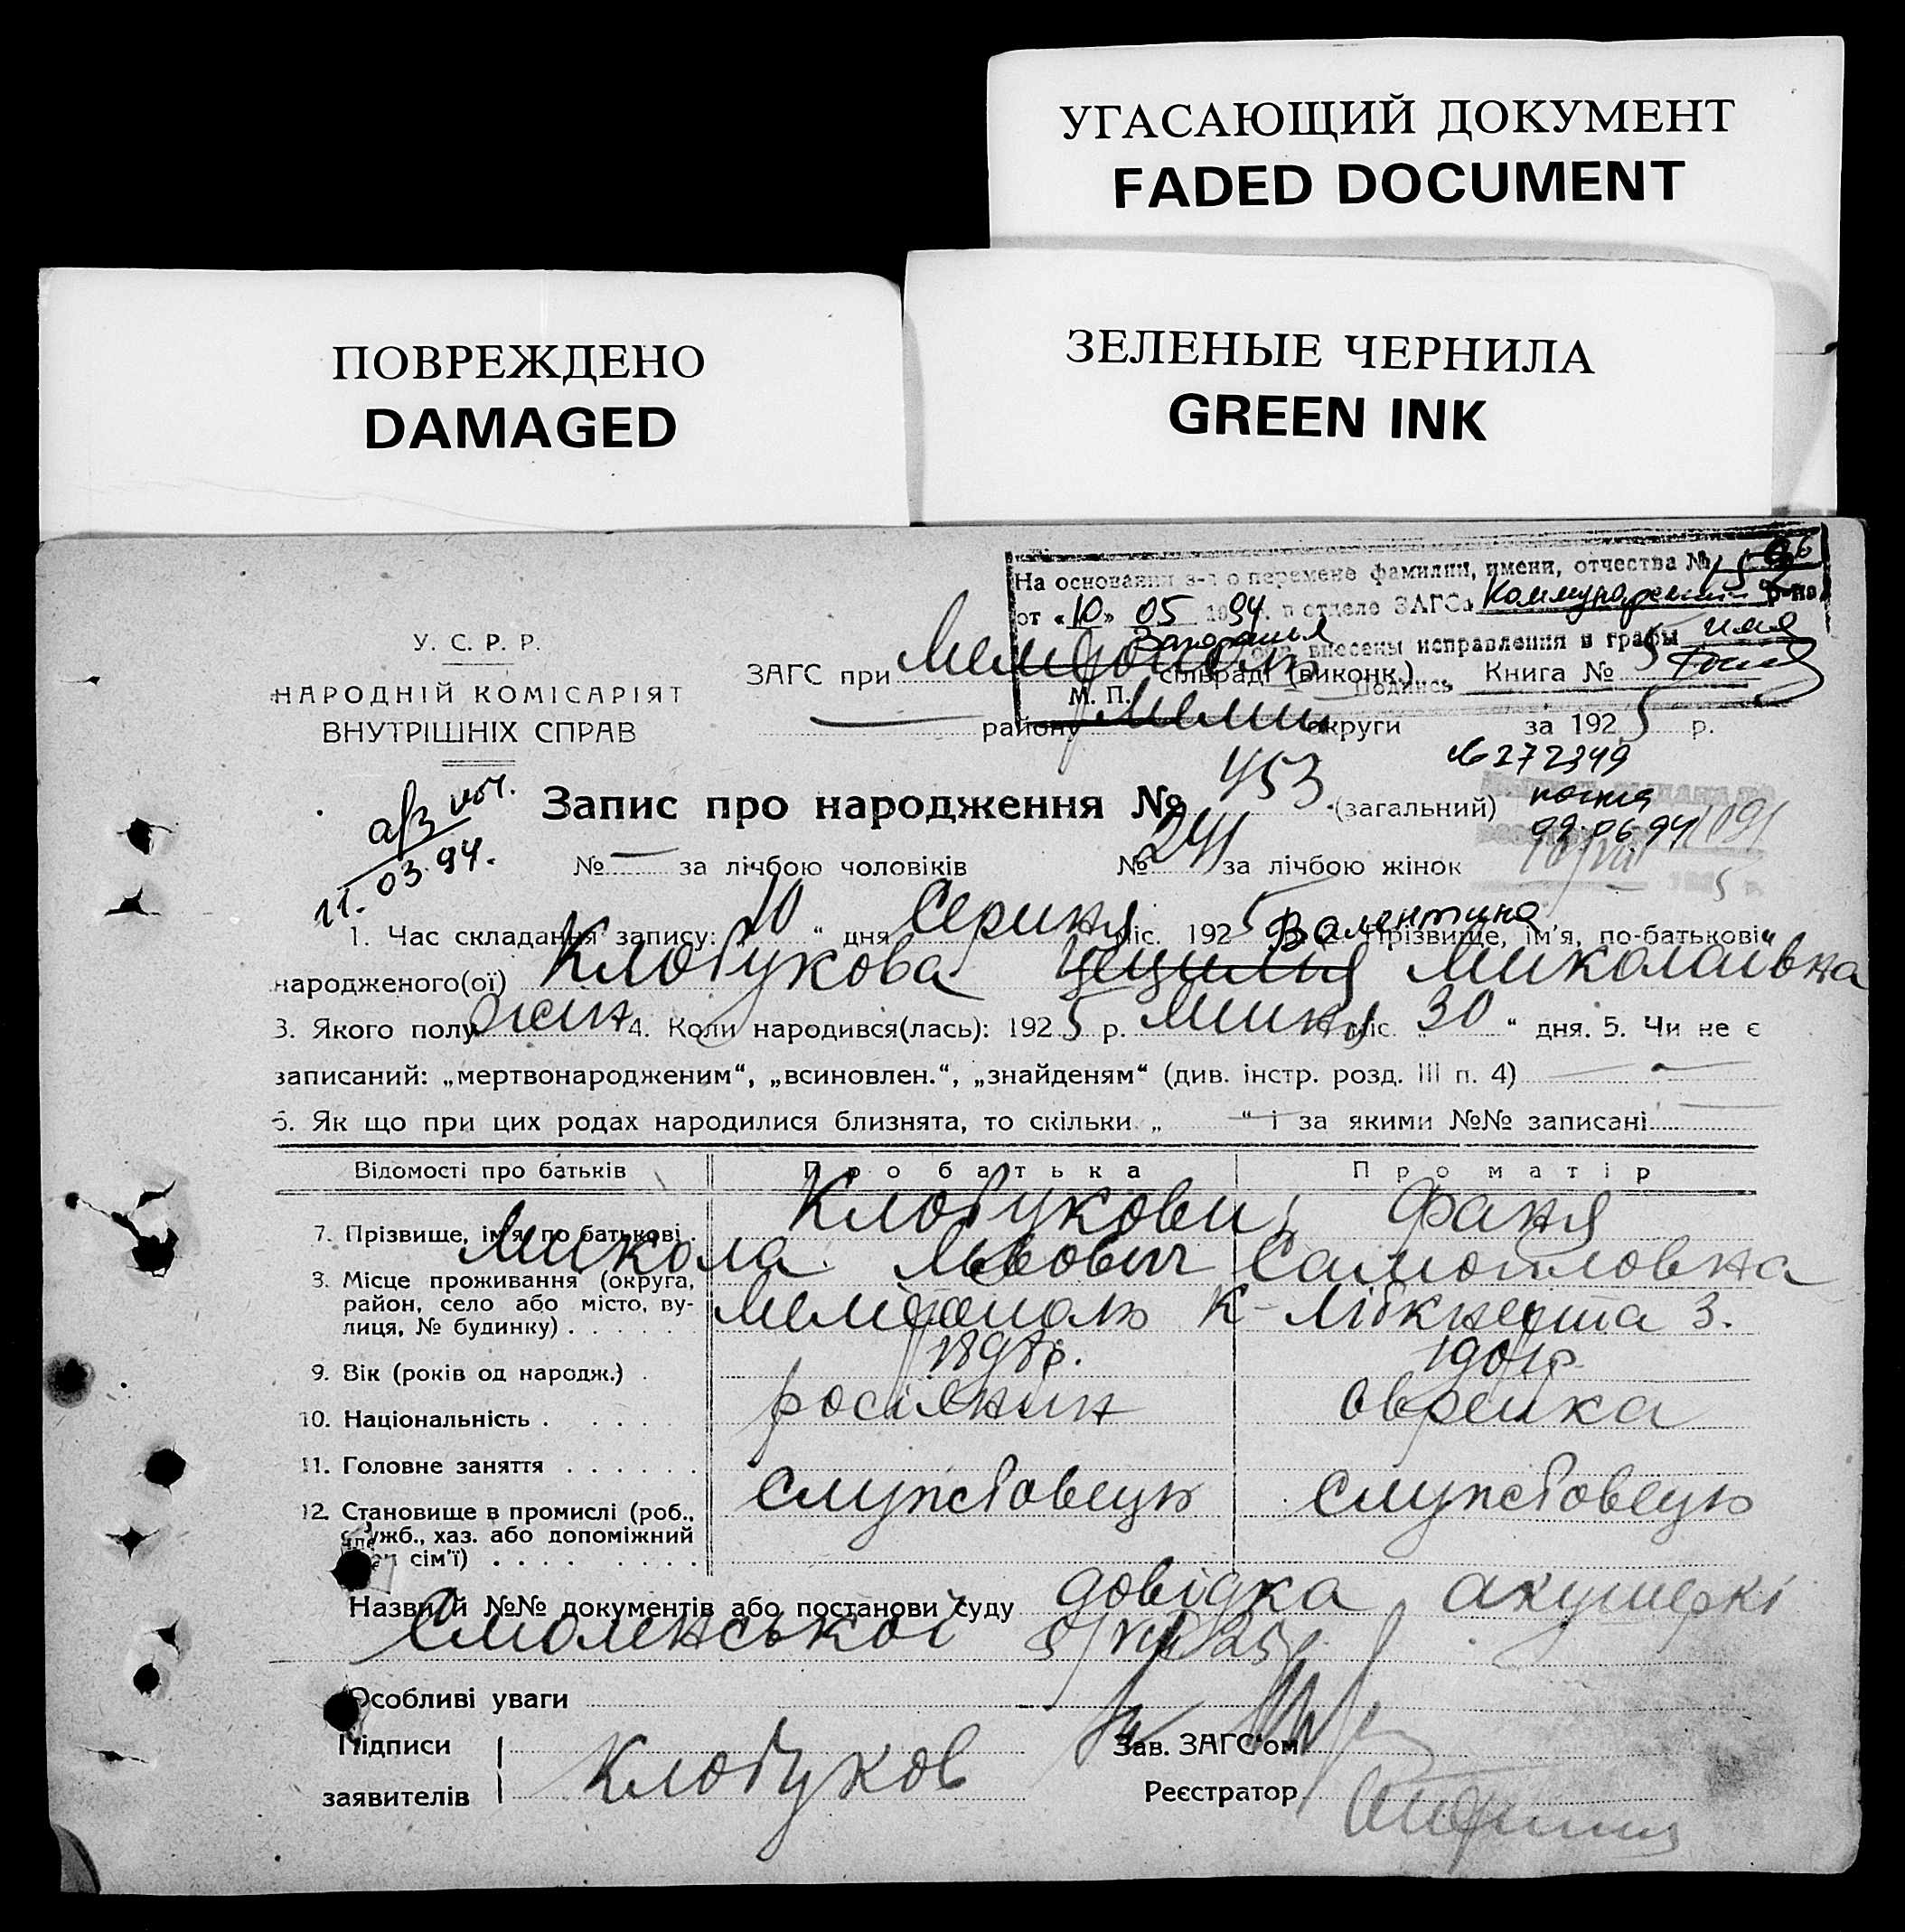 УГАСАЮЩИЙ ДОКУМЕНТ
FADED DOCUMENT
ПОВРЕЖДЕНО
DAMAGED
ЗЕЛЕНЫЕ ЧЕРНИЛА
GREEN INK
На основании з-я о перемене фамилии, имени, отчества №
от «10» 05 1994 г. в отделе ЗАГСа Коммунарский р-на
внесены исправления в графы имя
Подпись
М. П.
У. С. Р. Р.
НАРОДНІЙ КОМІСАРІЯТ
ВНУТРІШНІХ СПРАВ
ЗАГС при сільраді (виконк.) Книга № 5
району Меліт округи за 1925 р.
№272349
Запис про народження № 453 (загальний)
11.03.94.
№ — за лічбою чоловіків № 241 за лічбою жінок
1. Час складання запису: 10 “ дня Серпня міс. 1925 Валентина Прізвище, ім’я, по-батькові
народженого(ої) Клобукова Цецилия Миколаївна
3. Якого полу жін 4. Коли народився(лась): 1925 р. Липня міс. 30 “ дня. 5. Чи не є
записаний: „мертвонародженим“, „всиновлен.“, „знайденям“ (див. інстр. розд. III п. 4)
6. Як що при цих родах народилися близнята, то скільки „ “ і за якими №№ записані
Відомості про батьків Про батька Про матір
7. Прізвище, ім’я, по батькові Клобукови, Фаня
Микола Львович Самойловна
8. Місце проживання (округа,
район, село або місто, ву-
лиця, № будинку) Мелітополь К-Лібкнехта 3.
9. Вік (років од народж.) 1898р. 1901р
10. Національність росіянин еврейка
11. Головне заняття
12. Становище в промислі (роб.,
служб., хаз. або допоміжний
член сім’ї) службовець службовець
Назви й №№ документів або постанови суду довідка акушеркі
Смоленської 5/VIII 25
Особливі уваги
Підписи
заявителів Клобуков
Зав. ЗАГС’ом
Реєстратор